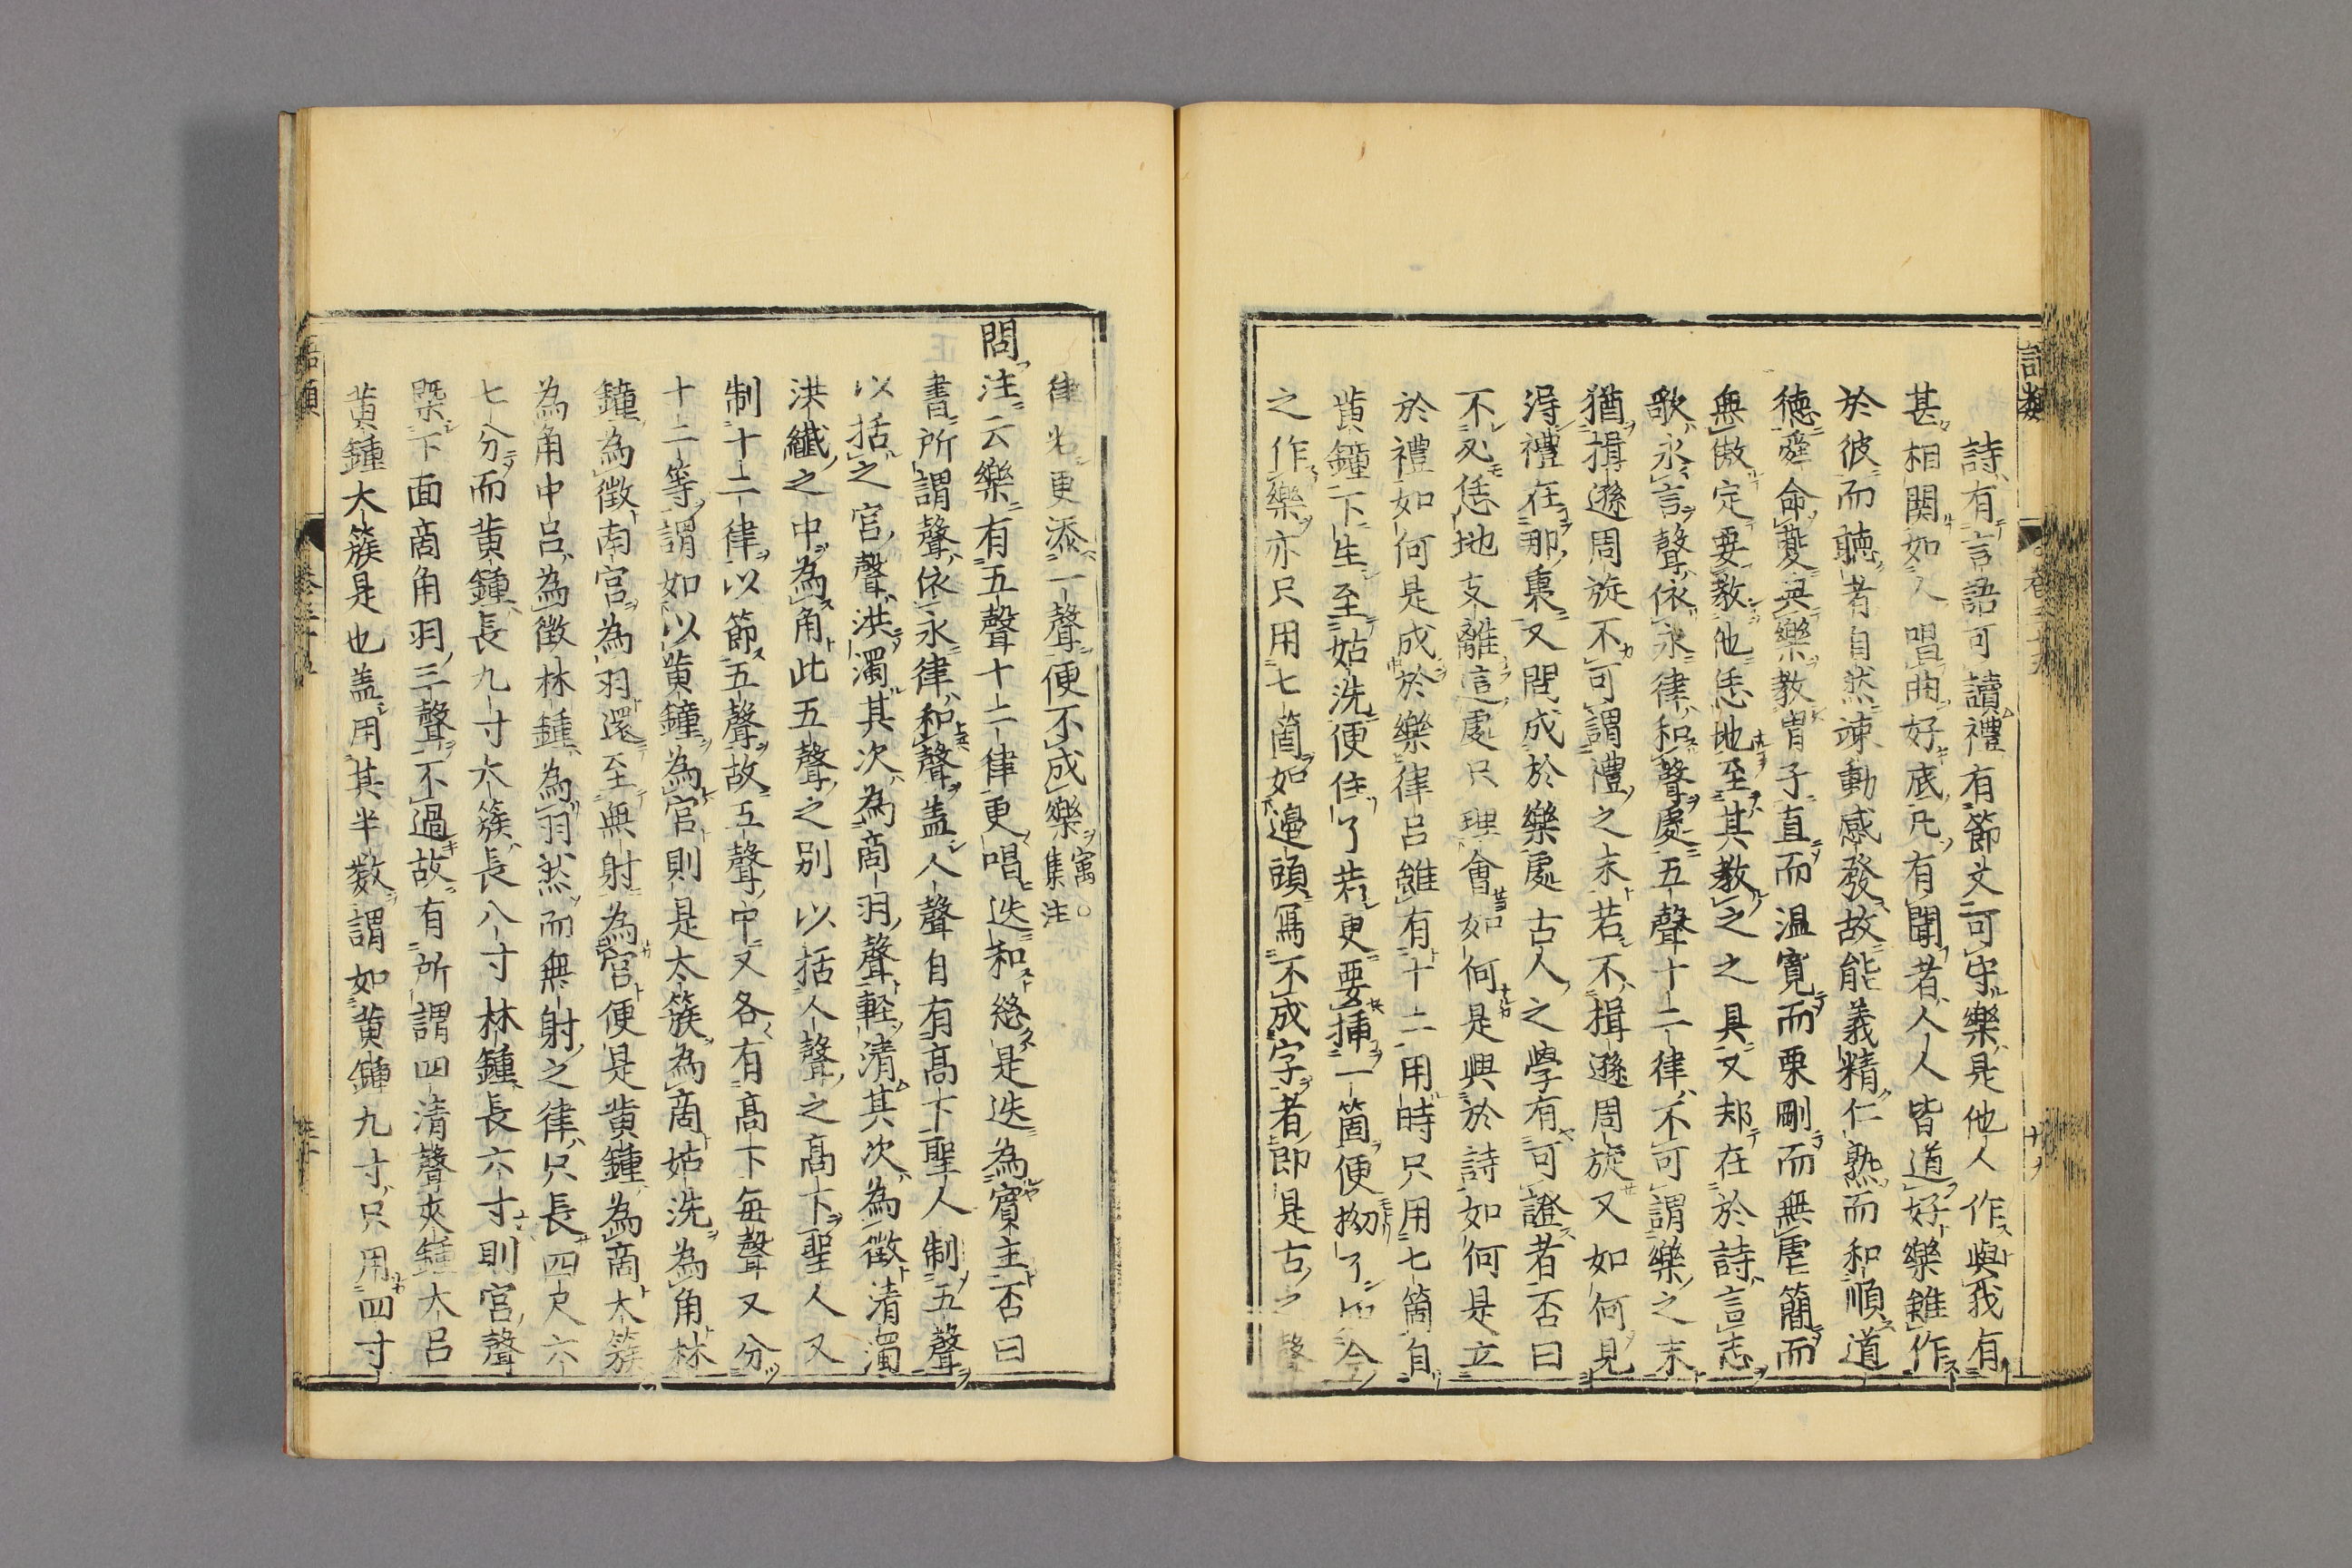 詩有言語可讀禮有節文可守樂是他人作與我有
甚相関如人唱曲好底凡有聞者人人皆道好樂雖作
於彼而聴者自然竦動感發故能義精仁熟而和順道
徳舜命夔典樂教胄子直而温寛而栗剛而無虐簡而
無傲定要教他恁地至其教之之具又却在於詩言志
歌永言聲依永律和聲處五聲十二律不可謂樂之末
猶揖遜周旋不可謂禮之末若不揖遜周旋又如何見
得禮在那裏又問成於樂處古人之學有可證者否曰
不必恁地支離這處只理會如何是興於詩如何是立
於禮如何是成於樂律呂雖有十二用時只用七箇自
黄鐘下生至姑洗便住了若更要插一箇便拗了如今
之作樂亦只用七箇如邉頭寫不成字者即是古之聲
律若更添一聲便不成樂寓○集注
問注云樂有五聲十二律更唱迭和恐是迭為賓主否曰
書所謂聲依永律和聲盖人聲自有高下聖人制五聲
以括之宮聲洪濁其次為商羽聲軽清其次為徵清濁
洪纖之中為角此五聲之别以括人聲之高下聖人又
制十二律以節五聲故五聲中又各有高下毎聲又分
十二等謂如以黄鐘為宮則是太簇為商姑洗為角林
鐘為徵南宮為羽還至無射為宮便是黄鐘為商太簇
為角中呂為徵林鍾為羽然而無射之律只長四尺六
七分而黄鐘長九寸太簇長八寸林鍾長六寸則宮聲
槩下面商角羽三聲不過故有所謂四清聲夾鍾大呂
黄鍾太簇是也盖用其半數謂如黄鍾九寸只用四寸
語類